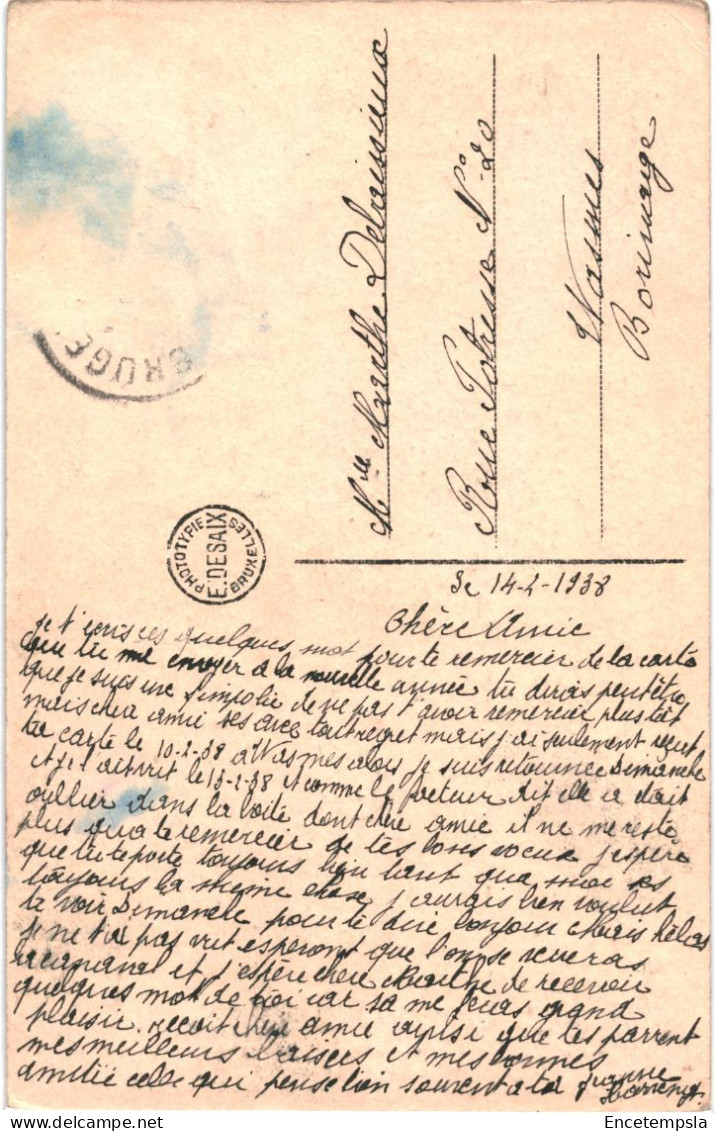 BRUGE
PHOTOTYPIE
E. DESAIX
BRUXELLES
Mlle Marthe Delaissieux
Rue Potresse N° 20
Wasmes
Borinage
le 14-2-1938
Chère Amie
Je t'ecris ces quelques mot pour te remercier de la carte
que tu me envoyer a la nouvelle année tu dirais peut être
que je suis une simpolie de ne pas t'avoir remercier plus tôt
mais cher amie ses avec tout regret mais j'ai seulement reçut
ta carte le 10-2-38 a Wasmes alors je suis retournee Dimanche
le 13-2-38 et comme le facteur dit elle a etait
oublier dans la boite dont cher amie il ne me reste
plus qua te remercier de tes bons voeux j'espère
que tu te porte toujours bien tant que moi ses
toujours la meme chose j'aurais bien voulut
te voir Dimanche pour te dire bonjour mais hélas
je ne t'ai pas vut esperont que l'on se reveras
a et j'espère chère Marthe de recevoir
quelques mot de toi car sa me feras grand
plaisir. recoit cher amie ainsi que tes parrent
mes meilleurs baisers et mes bonnes
amitié celle qui pense bien souvent a toi Jeanne
Encetempsla